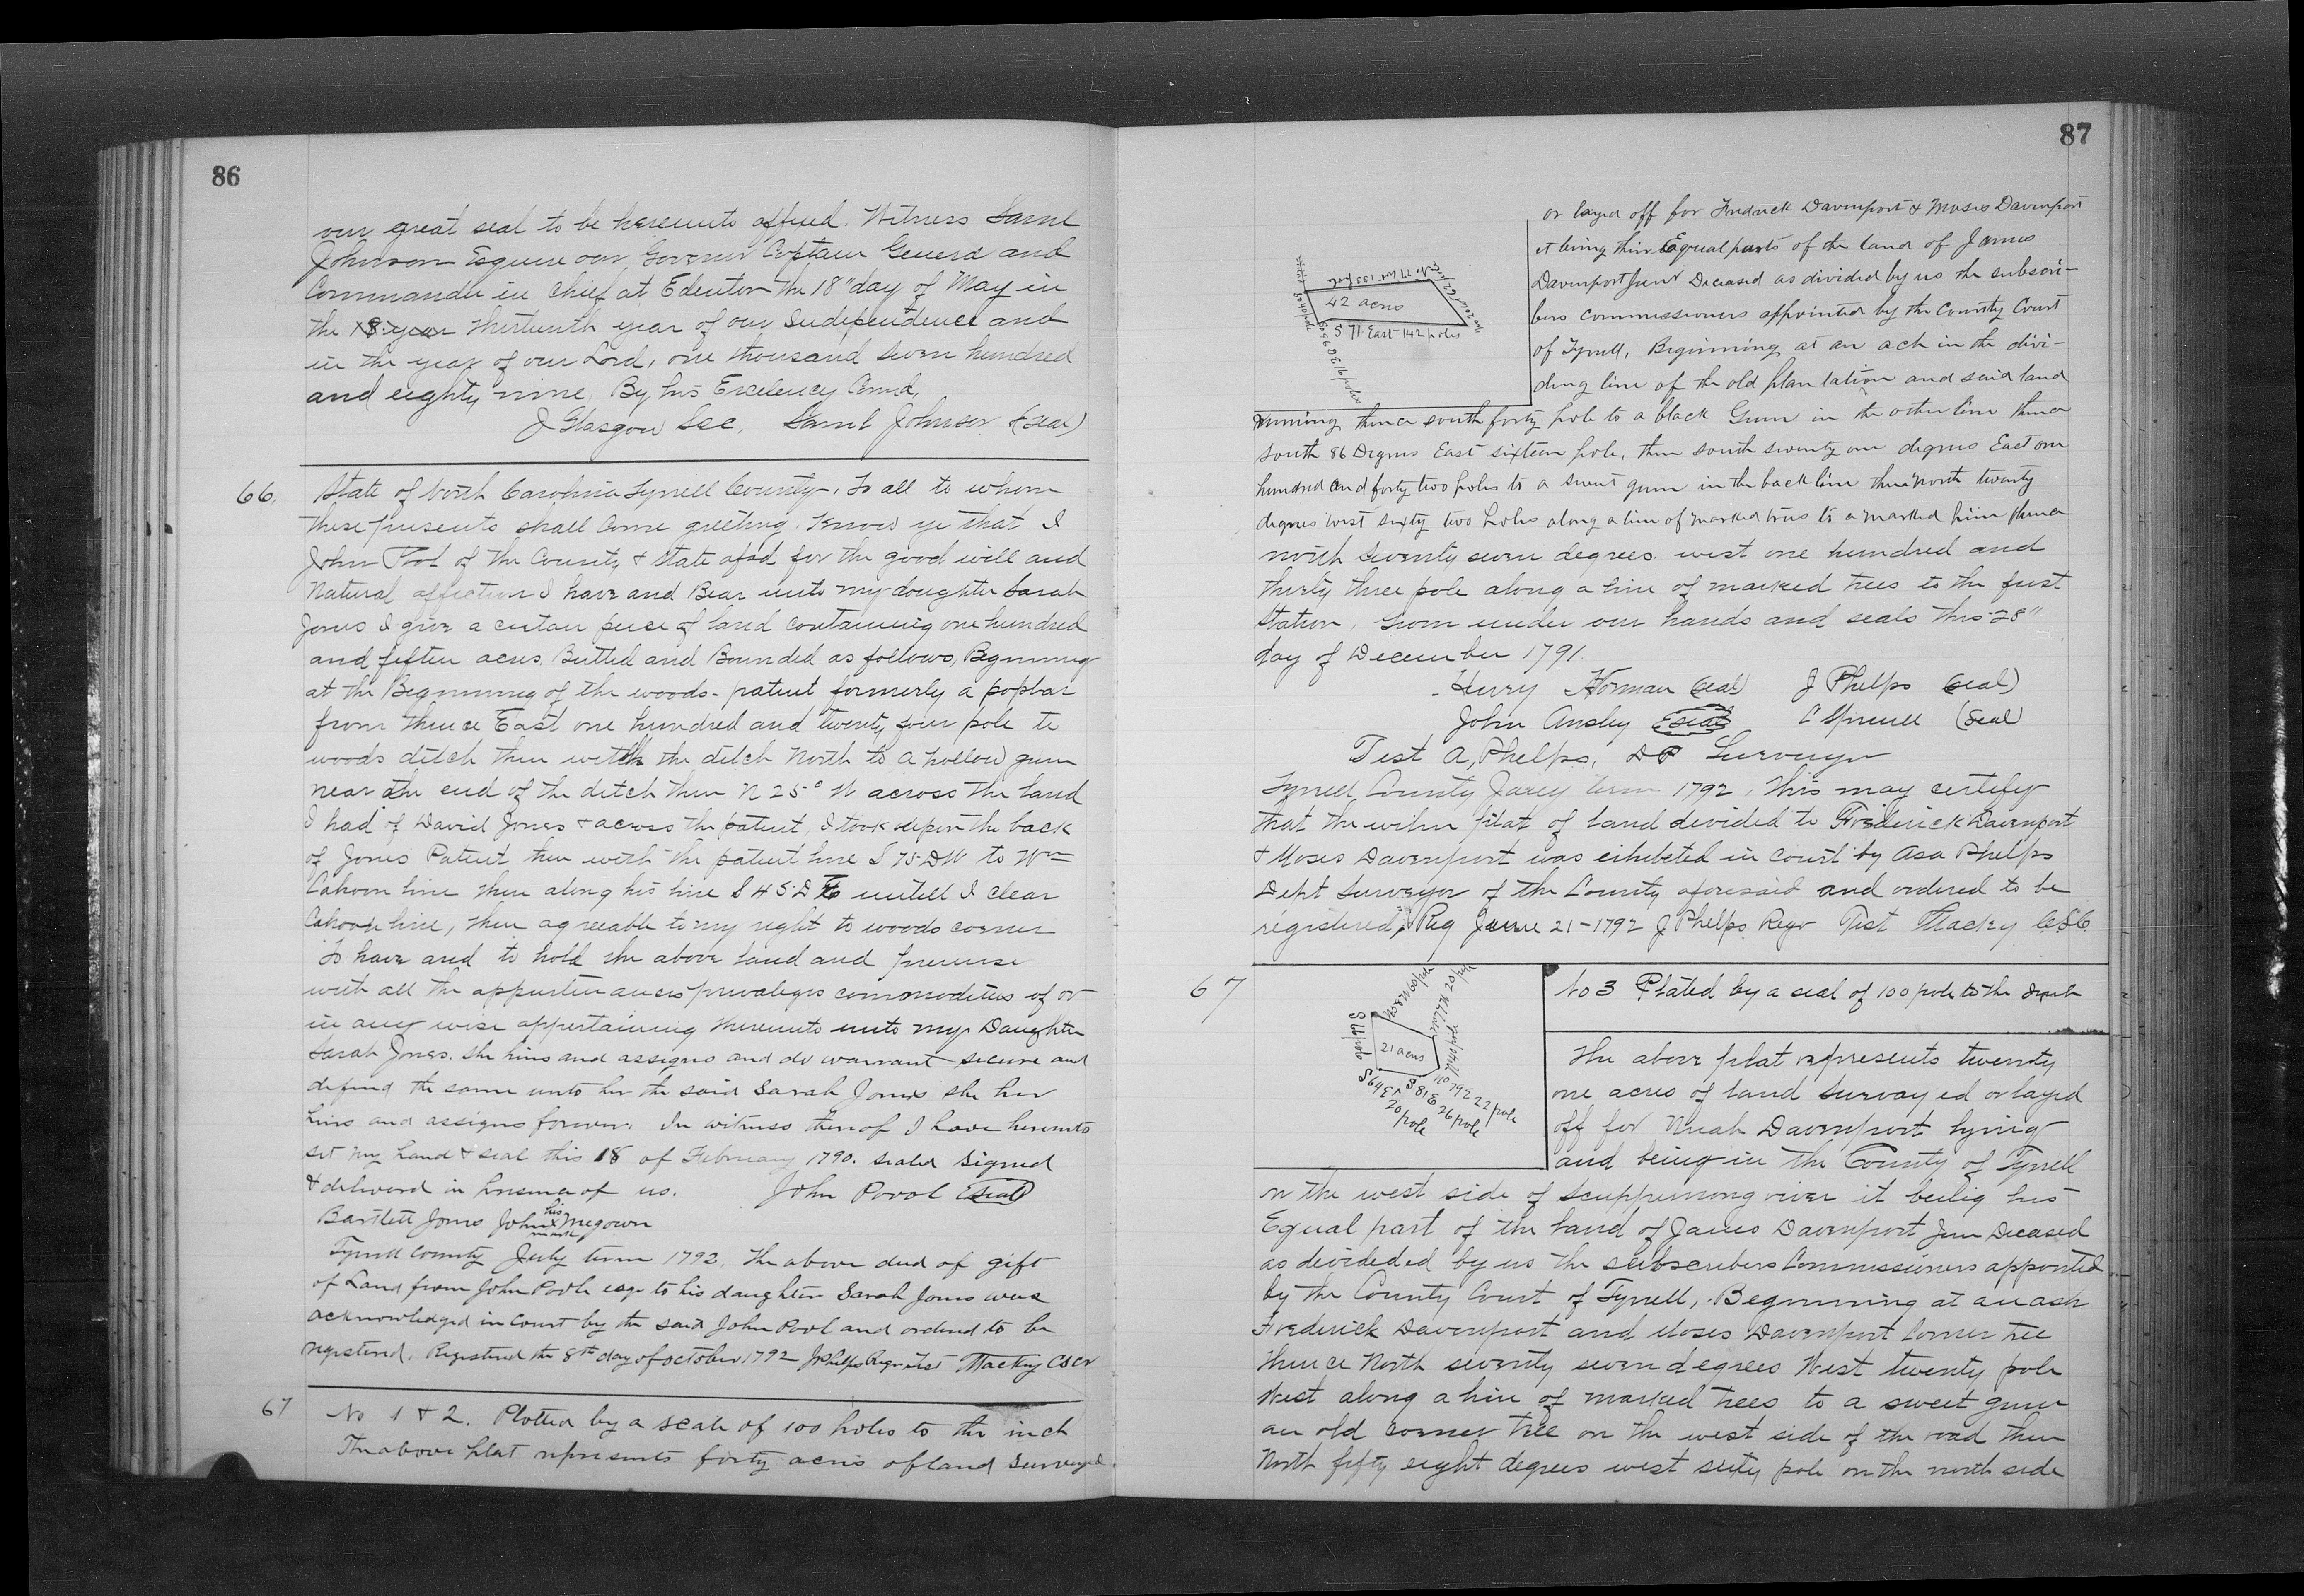 86
our great seal to be hereunto affixed. Witness Saml
Johnson Esquire our Governor Captain General and
Commander in Chief at Edenton the 18" day of May in
the 18 year thirteenth year of our Independence and
in the year of our Lord, one thousand seven hundred
and eighty nine. By his Excelency Comd,
J Glasgow Sec. Saml Johnson (seal)
66. State of North Carolina Tyrrell County, To all to whom
these presents shall Come greeting. Know ye that I
John Pool of the County & State afsd for the good will and
Natural affection I have and Bear unto my daughter Sarah
Jones I give a certain peice of land containing one hundred
and fiften acres, Butted and Bounded as follows, Begnning
at the Beginning of the woods patent formerly a poplar
from thence East one hundred and twenty four pole to
woods ditch then with the ditch North to a hollow gum
near the end of the ditch then N 25° W across the land
I had of David Jones & across the patent, I took upon the back
of Jones Patent then with the patent line S 75 DW to Wm
Cahoon line then along his line S 45 D E untill I clear
Cahoon line, then agreeable to my right to woods corner
To have and to hold the above land and premise
with all the appurtenances privaleges commodities of or
in any wise appertaining thereunto unto my Daughter
Sarah Jones. she hirs and assigns and do warrant secure and
defend the same unto her the said Sarah Jones she her
hirs and assigns forever. In witness thereof I have hereunto
set my hand & seal this 18 of February 1790. sealed signed
& delivered in presence of us. John Pool (seal)
Bartlett Jones John his x mark Megown
Tyrrell County July term 1792. The above deed of gift
of Land from John Poole esqr to his daughter Sarah Jones was
acknowledged in Court by the said John Pool and ordered to be
registered. Registered the 8th day of October 1792 J Phelps Regr Test T Mackey CSCr
67 No 1 & 2. Plotted by a scale of 100 poles to the inch
The above plat represents forty acres of land Surveyed
87
or layed off for Fredrick Davenport & Moses Davenport
it being their Eqqual parts of the land of James
Davenport Junr Deceased as divided by us the subscri-
bers commissioners appointed by the County Court
of Tyrrell, Beginning at an ach in the divi-
ding line of the old plantation and said land
No 77 West 133 pole
42 acres
S 71 East 142 poles
running thence south forty pole to a black Gum in the other line thence
South 86 Degrees East sixteen pole, then south seventy one degrees East one
hundred and forty two poles to a sweet gum in the back line thence north twenty
degrees west sixty two poles along a line of marked trees to a marked pine thence
north seventy seven degrees west one hundred and
thirty three pole along a line of marked trees to the first
Station. Given under our hands and seals this 28"
day of December 1791.
Henry Norman (seal) J Phelps (seal)
John Ansley (seal) C Spruell (seal)
Test A, Phelps, DP Surveyor
Tyrrell County Jany term 1792, This may certify
that the within plat of land devided to Frederick Davenport
& Moses Davenport was exhibeted in court by Asa Phelps
Dept Surveyor of the County aforesaid and ordered to be
registered, Reg June 21-1792 J Phelps Regr Test T Mackey CSC
67 No 3 Plated by a scal of 100 pole to the
21 acres
S 64 E 20 pole
S 81 E 26 pole
22 pole
The above plat represents twenty
one acres of land survayed or layed
off for Neiah Davenport lying
and being in the County of Tyrrell
on the west side of Scuppernong river it being his
Equal part of the land of James Davenport Junr Deceased
as devideded by us the subscribers Commissioners appointed
by the County Court of Tyrrell, Beginning at an ash
Frederick Davenport and Moses Davenport Corner tree
thence North seventy seven degrees West twenty pole
West along a line of marked trees to a sweet gum
an old corner tree on the west side of the road then
North fifty eight degrees west sixty pole on the north side